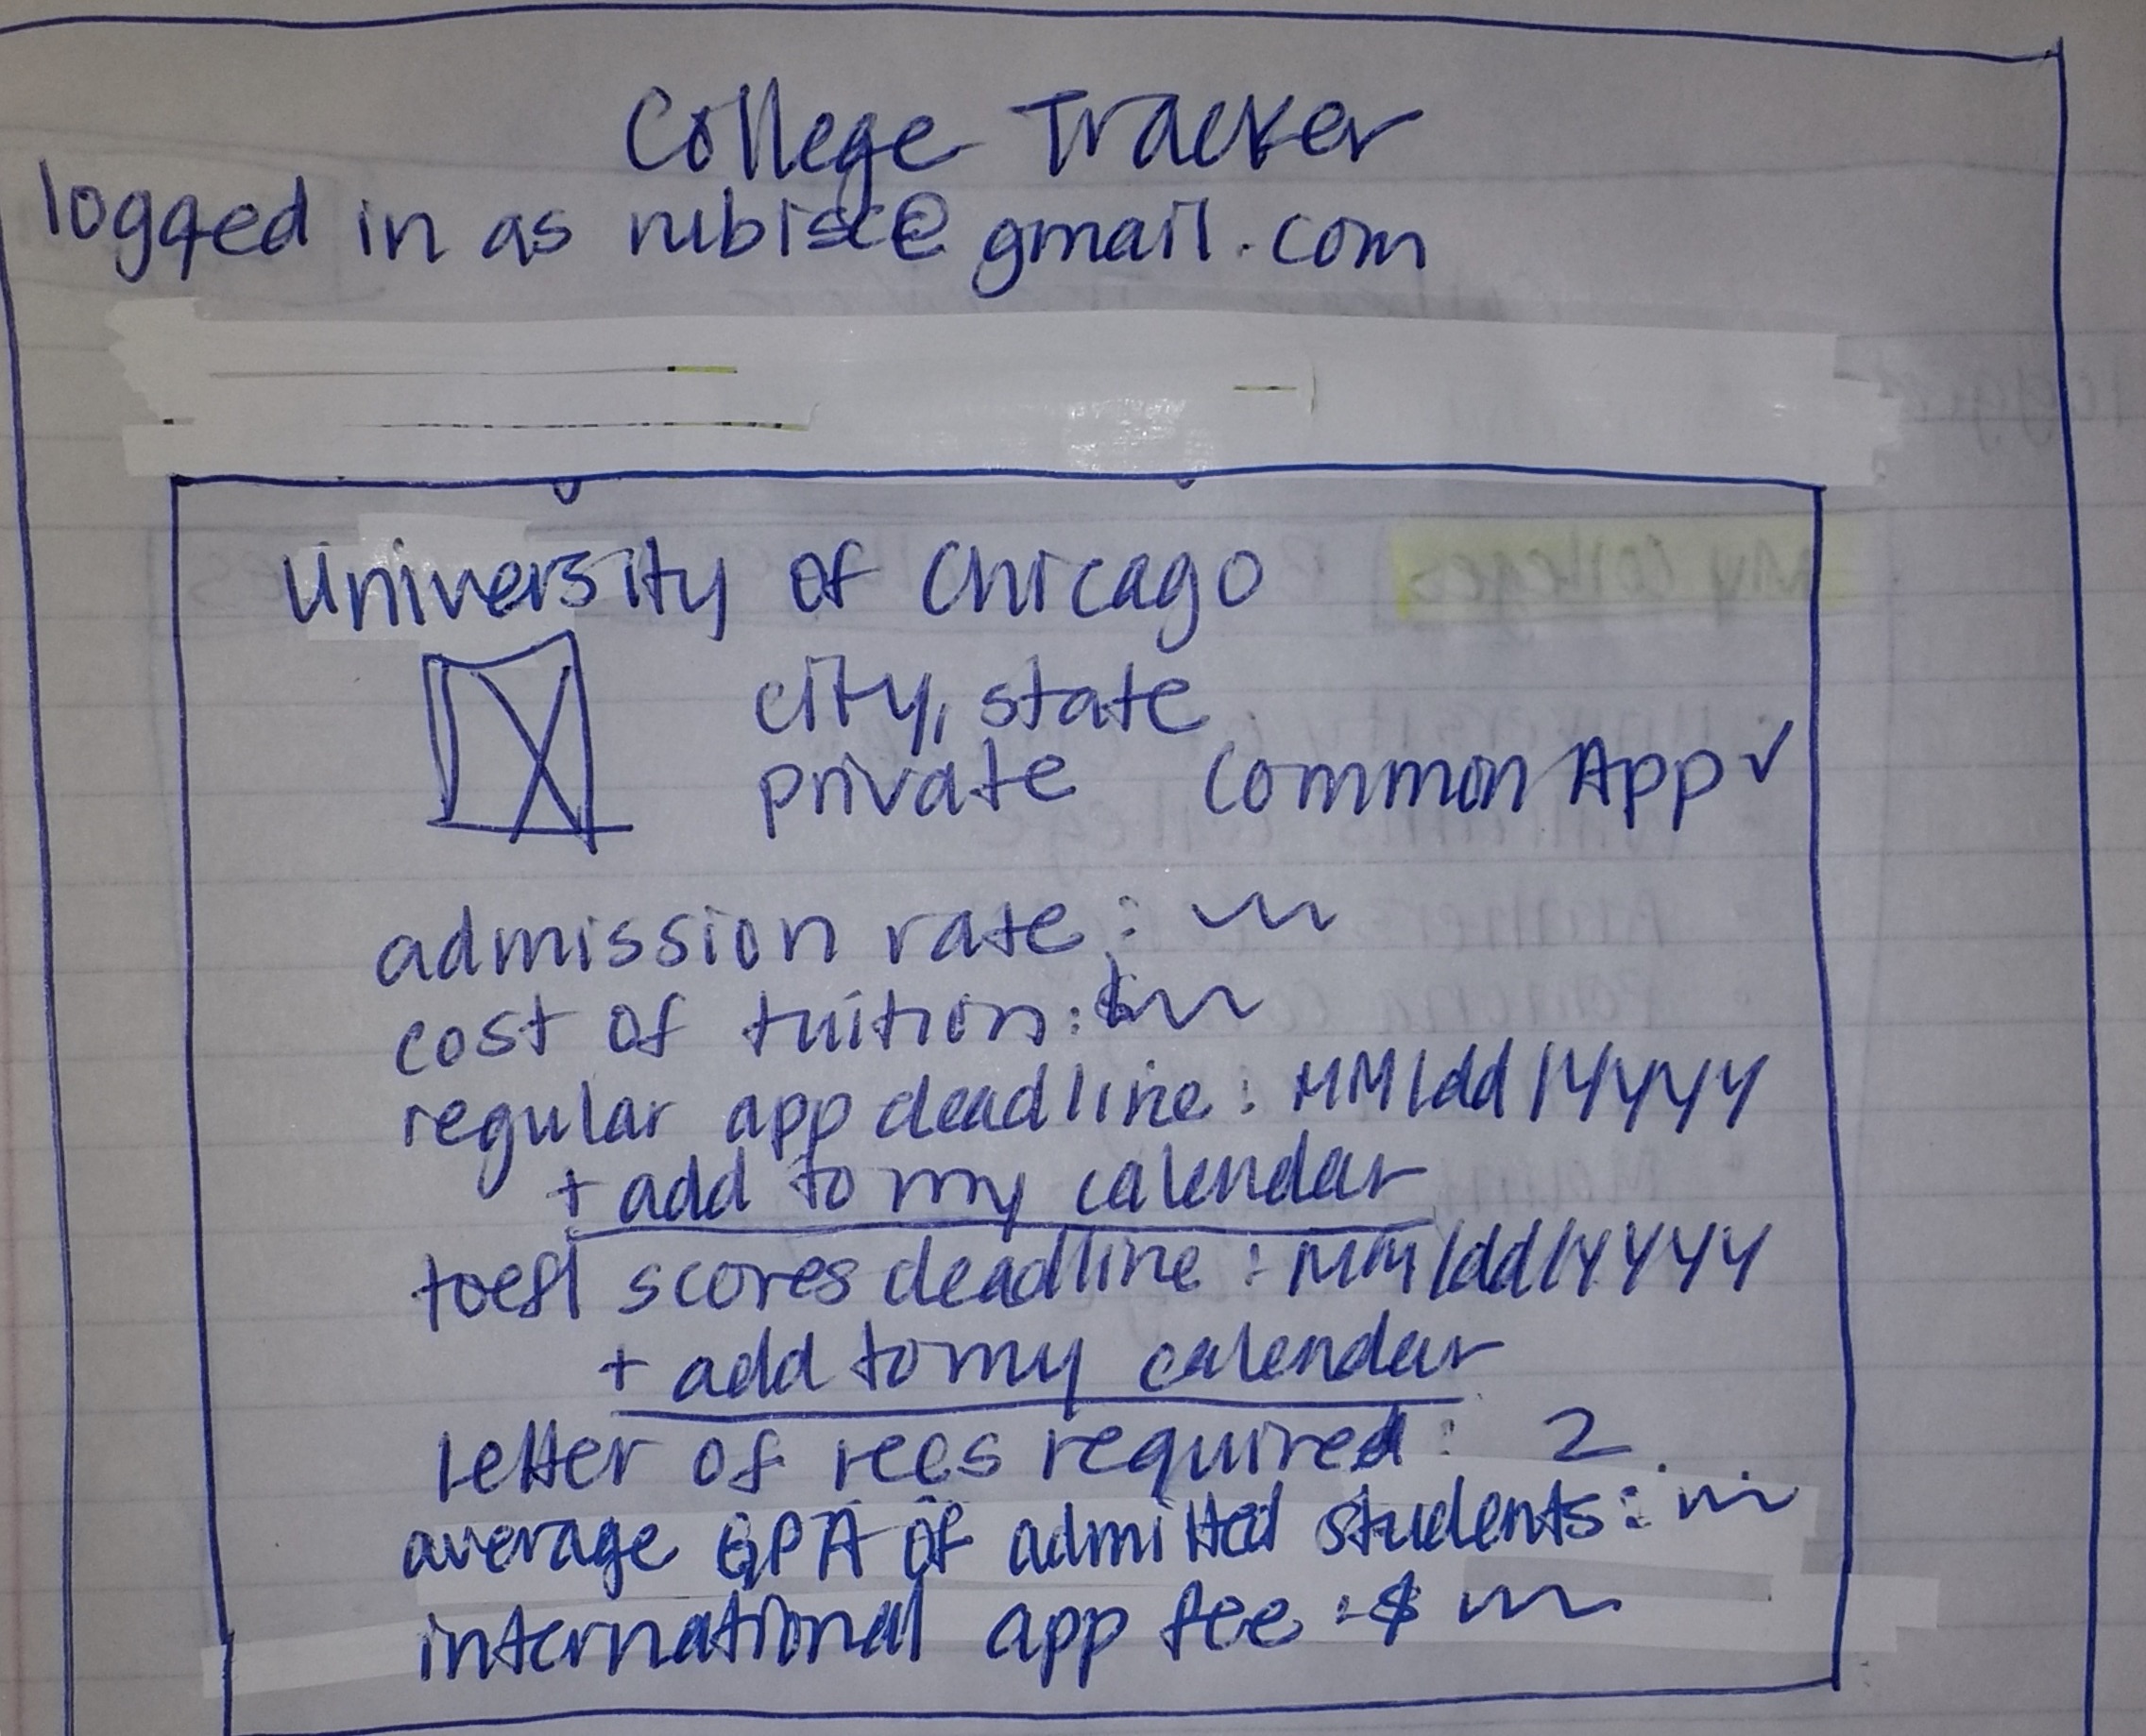 College Tracker
logged in as rubisce@gmail.com
University of Chicago
city, state
private Common App ✓
admission rate:
cost of tuition: $
regular app deadline: MM/dd/YYYY
+ add to my calendar
toefl scores deadline: MM/dd/YYYY
+ add to my calendar
letter of recs required: 2
average GPA of admitted students:
international app fee: $